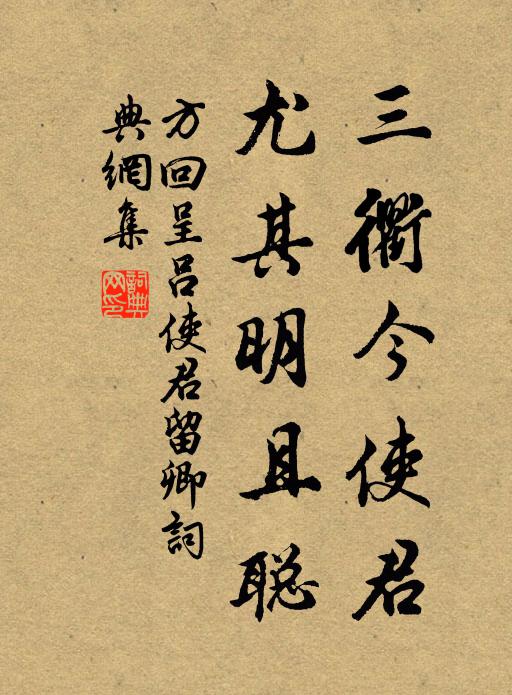 三衢今使君
尤其明且聪
方回呈吕使君留卿詞
典網集
詞典网印